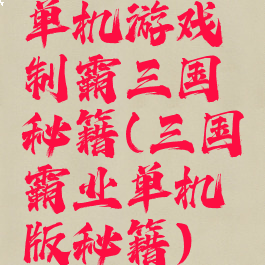 单机游戏
制霸三国
秘籍(三国
霸业单机
版秘籍)